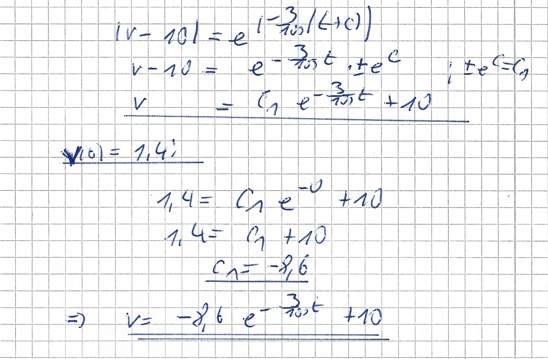 |v - 10| = e^(-3/100 (t+c))
v - 10 = e^(-3/100 t) · ±e^c ; ±e^c = C₁
v = C₁ e^(-3/100 t) + 10
v(0) = 1,4 :
1,4 = C₁ e^(-0) + 10
1,4 = C₁ + 10
C₁ = -8,6
=> v = -8,6 e^(-3/100 t) + 10